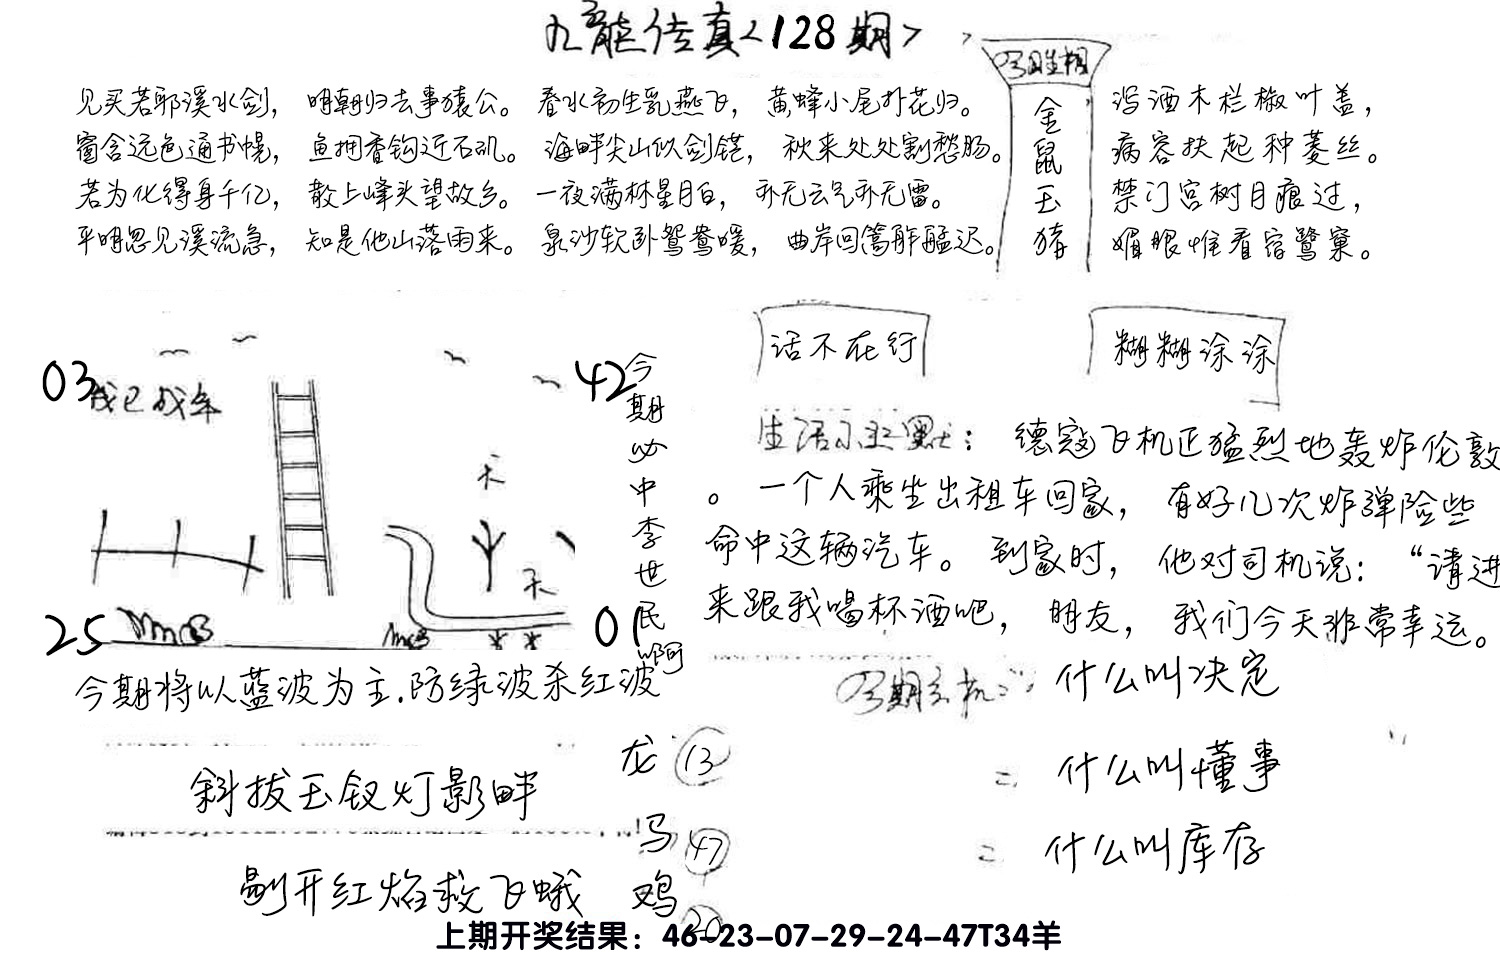 九龙传真<128期>
见买若耶溪水剑，明朝归去事猿公。春水初生乳燕飞，黄蜂小尾扑花归。
窗含远色通书幌，鱼拥香钩近石矶。海畔尖山似剑铓，秋来处处割愁肠。
若为化得身千亿，散上峰头望故乡。一夜满林星月白，亦无云气亦无雷。
平明忽见溪流急，知是他山落雨来。泉沙软卧鸳鸯暖，曲岸回篙舴艋迟。
金鼠玉猪
泻酒木栏椒叶盖，
病容扶起种菱丝。
禁门宫树月痕过，
媚眼惟看宿鹭窠。
话不在行
糊糊涂涂
03
42
25
01
天
天
今期必中李世民啊
今期将以蓝波为主.防绿波杀红波
生活小幽默：德寇飞机正猛烈地轰炸伦敦
。一个人乘坐出租车回家，有好几次炸弹险些
命中这辆汽车。到家时，他对司机说：“请进
来跟我喝杯酒吧，朋友，我们今天非常幸运。
今期玄机：什么叫决定
= 什么叫懂事
= 什么叫库存
斜拔玉钗灯影畔
剔开红焰救飞蛾
龙 13
马 47
鸡 20
上期开奖结果：46-23-07-29-24-47T34羊